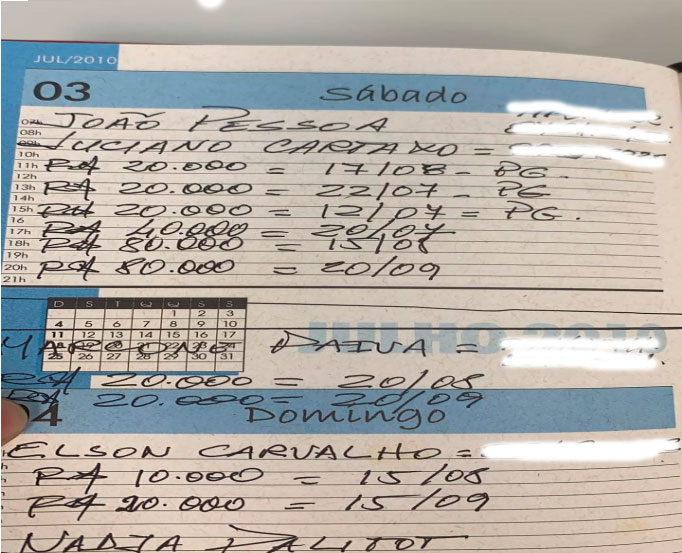 JUL/2010
03 Sábado
07h JOÃO PESSOA
08h
09h LUCIANO CARTAXO =
10h
11h R$ 20.000 = 17/08 - PG.
12h
13h R$ 20.000 = 22/07 PG
14h
15h R$ 20.000 = 12/07 = PG.
16
17h R$ 40.000 = 20/07
18h R$ 80.000 = 15/08
19h
20h R$ 80.000 = 20/09
21h
D S T Q Q S S
1 2 3
4 5 6 7 8 9 10
11 12 13 14 15 16 17
18 22 23 24
25 26 27 28 29 30 31
JULHO 2010
PAIVA =
R$ 20.000 = 20/08
R$ 20.000 = 20/09
4 Domingo
ELSON CARVALHO =
R$ 10.000 = 15/08
R$ 20.000 = 15/09
NADJA PALITOT